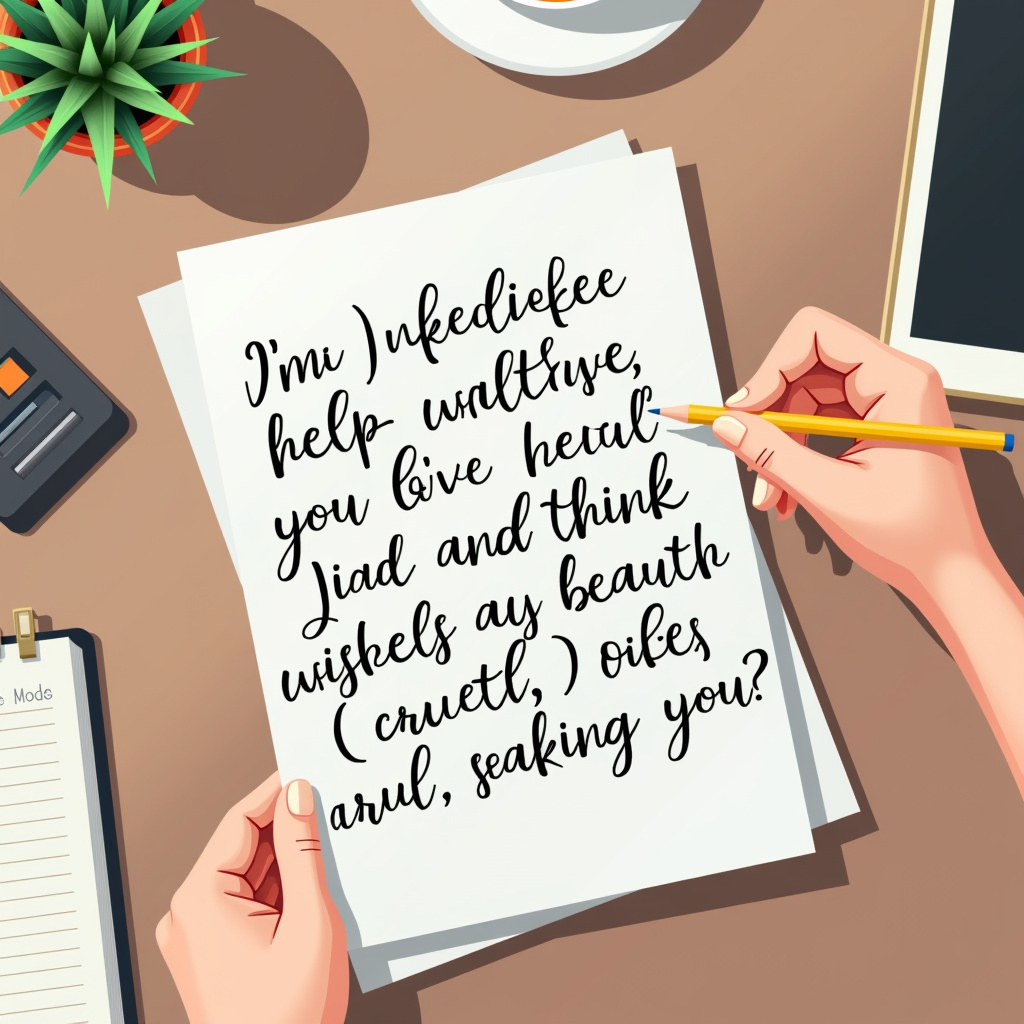 I'm )nkediekee
help
you Give
Jiad and think
wiskels ay beauth
( cruetl, ) oikes
arul, seaking you?
Mods